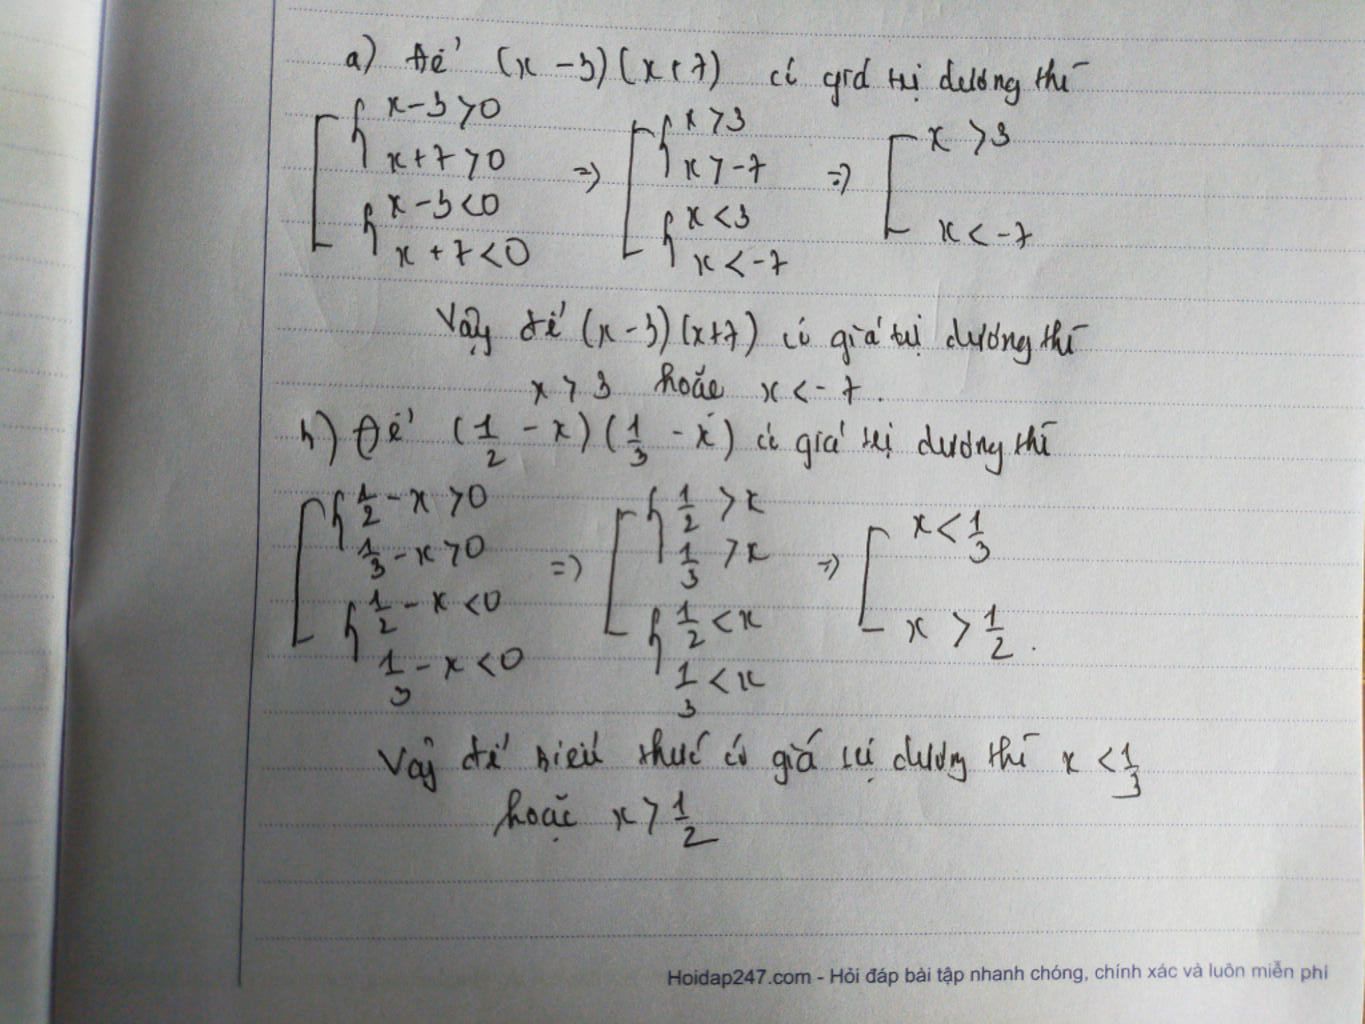 a) Để (x - 3)(x + 7) có giá trị dương thì
x - 3 > 0
x + 7 > 0
x - 3 < 0
x + 7 < 0
=>
x > 3
x > -7
x < 3
x < -7
=>
x > 3
x < -7
Vậy để (x - 3)(x + 7) có giá trị dương thì
x > 3 hoặc x < -7.
b) Để (1/2 - x)(1/3 - x) có giá trị dương thì
1/2 - x > 0
1/3 - x > 0
1/2 - x < 0
1/3 - x < 0
=>
1/2 > x
1/3 > x
1/2 < x
1/3 < x
=>
x < 1/3
x > 1/2.
Vậy để biểu thức có giá trị dương thì x < 1/3
hoặc x > 1/2
Hoidap247.com - Hỏi đáp bài tập nhanh chóng, chính xác và luôn miễn phí